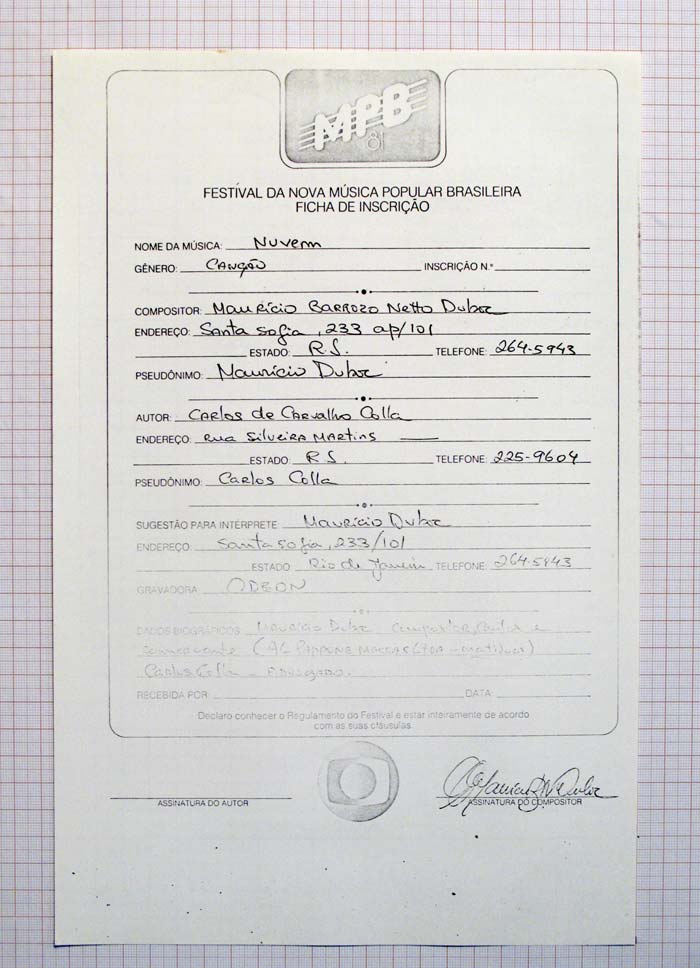 MPB
81
FESTIVAL DA NOVA MÚSICA POPULAR BRASILEIRA
FICHA DE INSCRIÇÃO
NOME DA MÚSICA: Nuvem
GÊNERO: Canção INSCRIÇÃO N.º
COMPOSITOR: Maurício Barrozo Netto Duboc
ENDEREÇO: Santa Sofia, 233 ap/101
ESTADO: R.J. TELEFONE: 264-5943
PSEUDÔNIMO: Maurício Duboc
AUTOR: Carlos de Carvalho Colla
ENDEREÇO: Rua Silveira Martins
ESTADO: R.J. TELEFONE: 225-9604
PSEUDÔNIMO: Carlos Colla
SUGESTÃO PARA INTÉRPRETE Maurício Duboc
ENDEREÇO: Santa Sofia, 233/101
ESTADO Rio de Janeiro TELEFONE: 264-5943
GRAVADORA ODEON
DADOS BIOGRÁFICOS Maurício Duboc compositor
comerciante (AL
Carlos Colla - Advogado.
RECEBIDA POR DATA
Declaro conhecer o Regulamento do Festival e estar inteiramente de acordo
com as suas cláusulas.
ASSINATURA DO AUTOR ASSINATURA DO COMPOSITOR